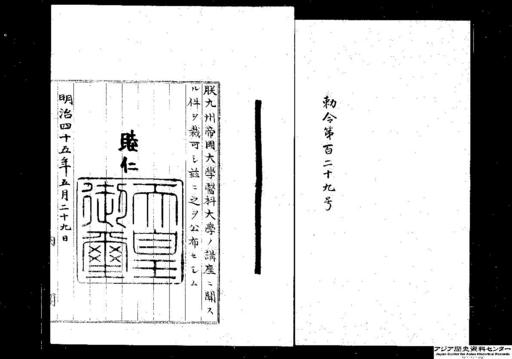 勅令第百二十九号
朕九州帝國大學醫科大學ノ講座ニ關ス
ル件ヲ裁可シ茲ニ之ヲ公布セシム
睦仁
天皇
御璽
明治四十五年五月二十九日
アジア歴史資料センター
Japan Center for Asian Historical Records